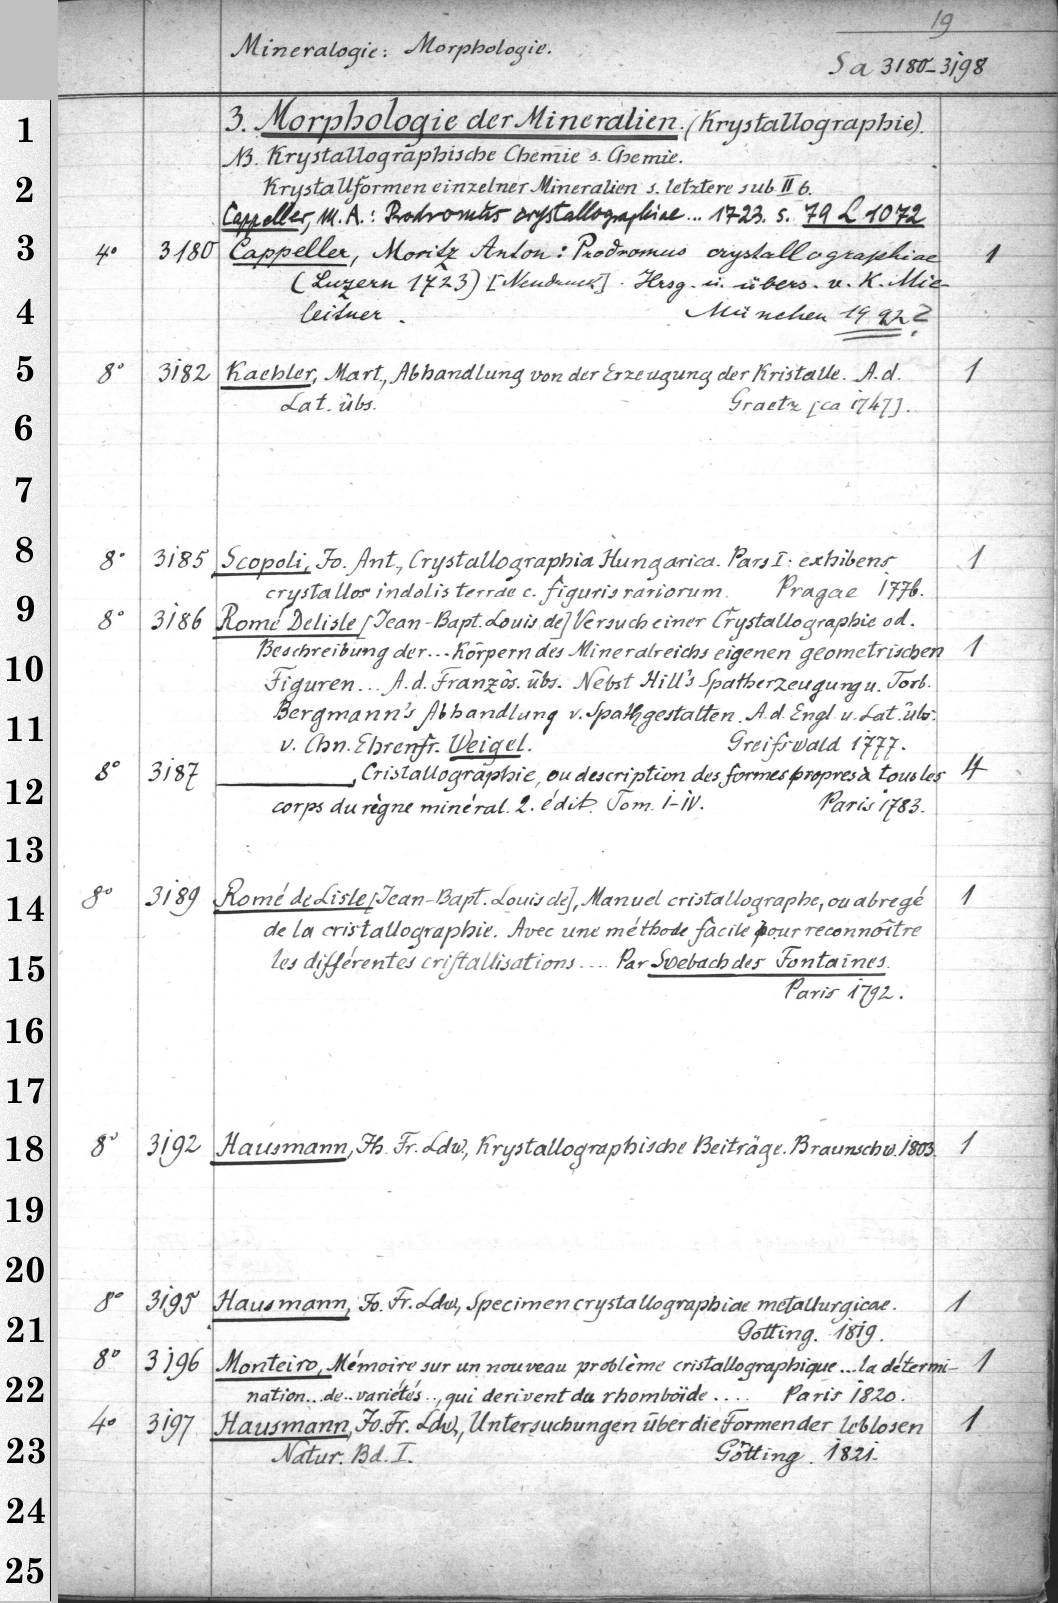 19
Mineralogie: Morphologie.
Sa 3180-3198
3. Morphologie der Mineralien. (Krystallographie).
NB. Krystallographische Chemie s. Chemie.
Krystallformen einzelner Mineralien s. letztere sub II 6.
Cappeller, M. A.: Prodromus crystallographiae... 1723. s. 79 L 1072
4° 3180 Cappeller, Moritz Anton: Prodromus crystallographiae 1
(Luzern 1723) [Neudruck]. Hrsg. u. übers. v. K. Mie-
leitner. München 1922
8° 3182 Kaehler, Mart., Abhandlung von der Erzeugung der Kristalle. A.d. 1
Lat. übs. Graetz [ca 1747].
8° 3185 Scopoli, Jo. Ant., Crystallographia Hungarica. Pars I: exhibens 1
crystallos indolis terrae c. figuris rariorum. Pragae 1776.
8° 3186 Romé Delisle [Jean-Bapt. Louis de] Versuch einer Crystallographie od.
Beschreibung der... Körpern des Mineralreichs eigenen geometrischen 1
Figuren... A.d. Französ. übs. Nebst Hill's Spatherzeugung u. Torb.
Bergmann's Abhandlung v. Spathgestalten. A.d. Engl u. Lat. übs.
v. Chn. Ehrenfr. Weigel. Greifswald 1777.
8° 3187 ______, Cristallographie, ou description des formes propres à tous les 4
corps du règne minéral. 2. édit. Tom. I-IV. Paris 1783.
8° 3189 Romé de Lisle [Jean-Bapt. Louis de], Manuel cristallographe, ou abregé 1
de la cristallographie. Avec une méthode facile pour reconnoître
les différentes cristallisations.... Par Swebach des Fontaines.
Paris 1792.
8° 3192 Hausmann, Jh. Fr. Ldw., Krystallographische Beiträge. Braunschw. 1803. 1
8° 3195 Hausmann, Jo. Fr. Ldw., Specimen crystallographiae metallurgicae. 1
Gotting. 1819.
8° 3196 Monteiro, Mémoire sur un nouveau problème cristallographique... la détermi- 1
nation... de... variétés..., qui derivent du rhomboïde.... Paris 1820.
4° 3197 Hausmann, Jo. Fr. Ldw., Untersuchungen über die Formen der leblosen 1
Natur. Bd. I. Götting. 1821.
1
2
3
4
5
6
7
8
9
10
11
12
13
14
15
16
17
18
19
20
21
22
23
24
25